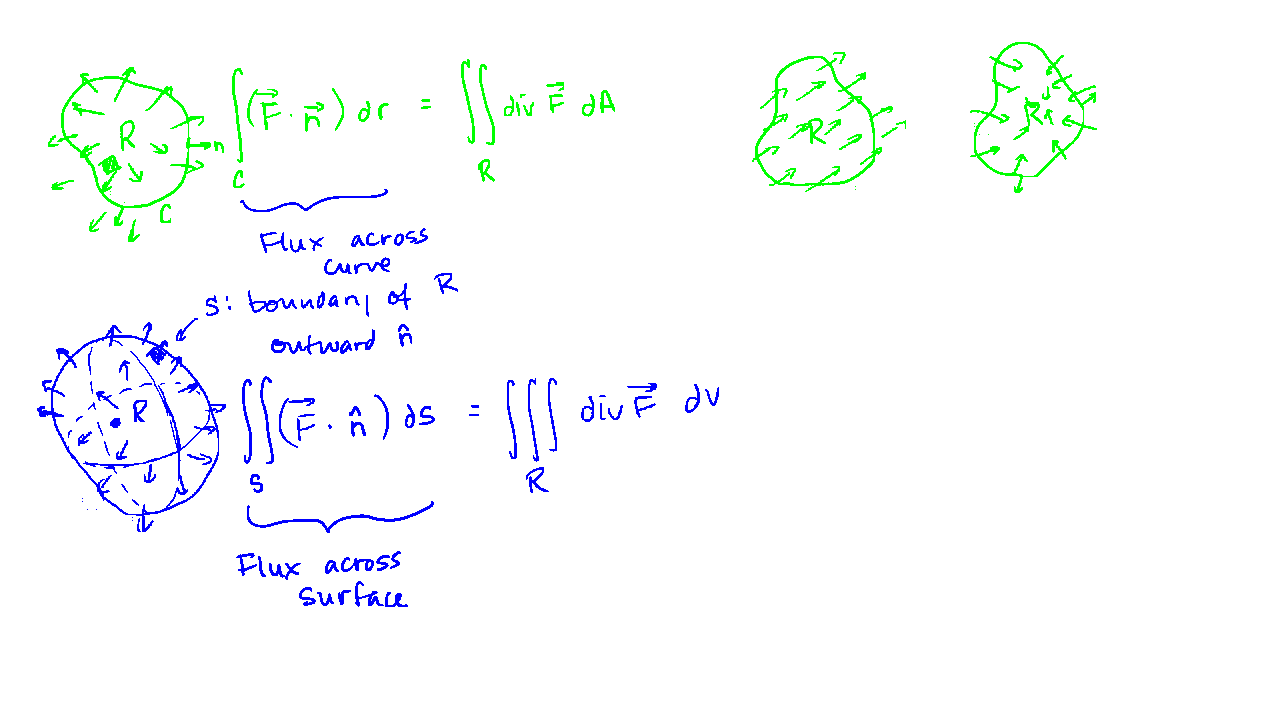 R
n
C
∫_C (F⃗ · n⃗) dr = ∬_R div F⃗ dA
R
R
Flux across
curve
S: boundary of R
outward n̂
R
∬_S (F⃗ · n̂) ds = ∭_R div F⃗ dv
Flux across
surface